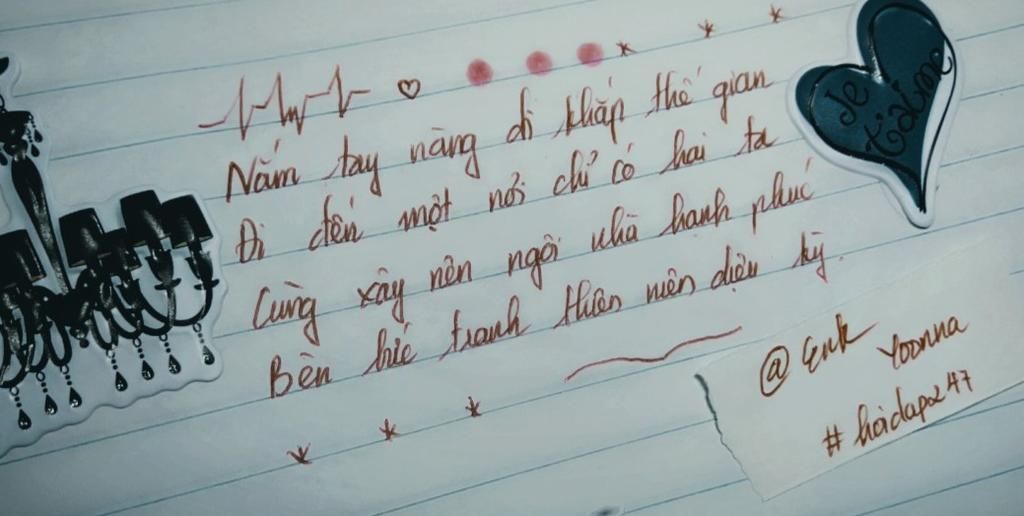 Nắm tay nàng đi khắp thế gian
Đi đến một nơi chỉ có hai ta
Cùng xây nên ngôi nhà hạnh phúc
Bên bức tranh thiên niên diệu kỳ.
Je t'aime
@ Enk Yoonna
# hoidap247